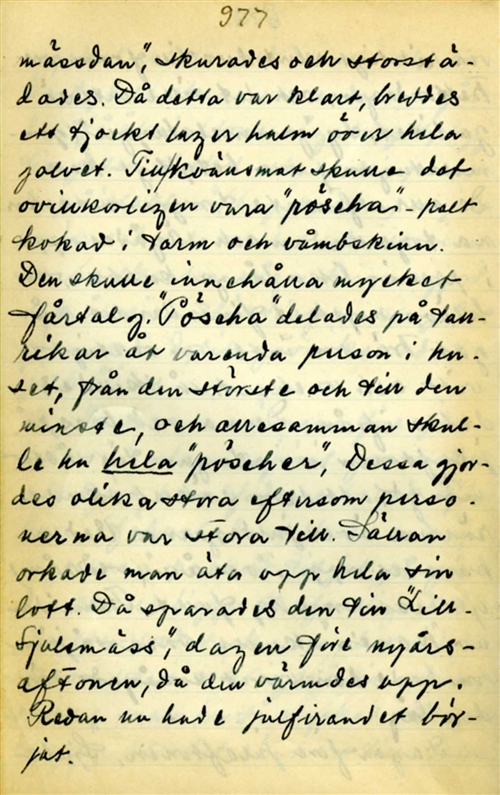 977
mässdan", skurades och storstä-
dades. Då detta var klart, breddes
ett tjockt lager halm över hela
golvet. Till kvällsmat skulle det
ovillkorligen vara "pöscha" - palt
kokad i tarm och våmbskinn.
Den skulle innehålla mycket
fårtalg. "Pöscha" delades på tall-
rikar åt varenda person i hu-
set, från den störste och till den
minste, och allesamman skul-
le ha hela "pöscher", Dessa gjor-
des olika stora eftersom perso-
nerna var stora till. Sällan
orkade man äta upp hela sin
lott. Då sparades den till "Lill-
Sjulsmäss", dagen före nyårs-
aftonen, då den värmdes upp.
Redan nu hade julfirandet bör-
jat.